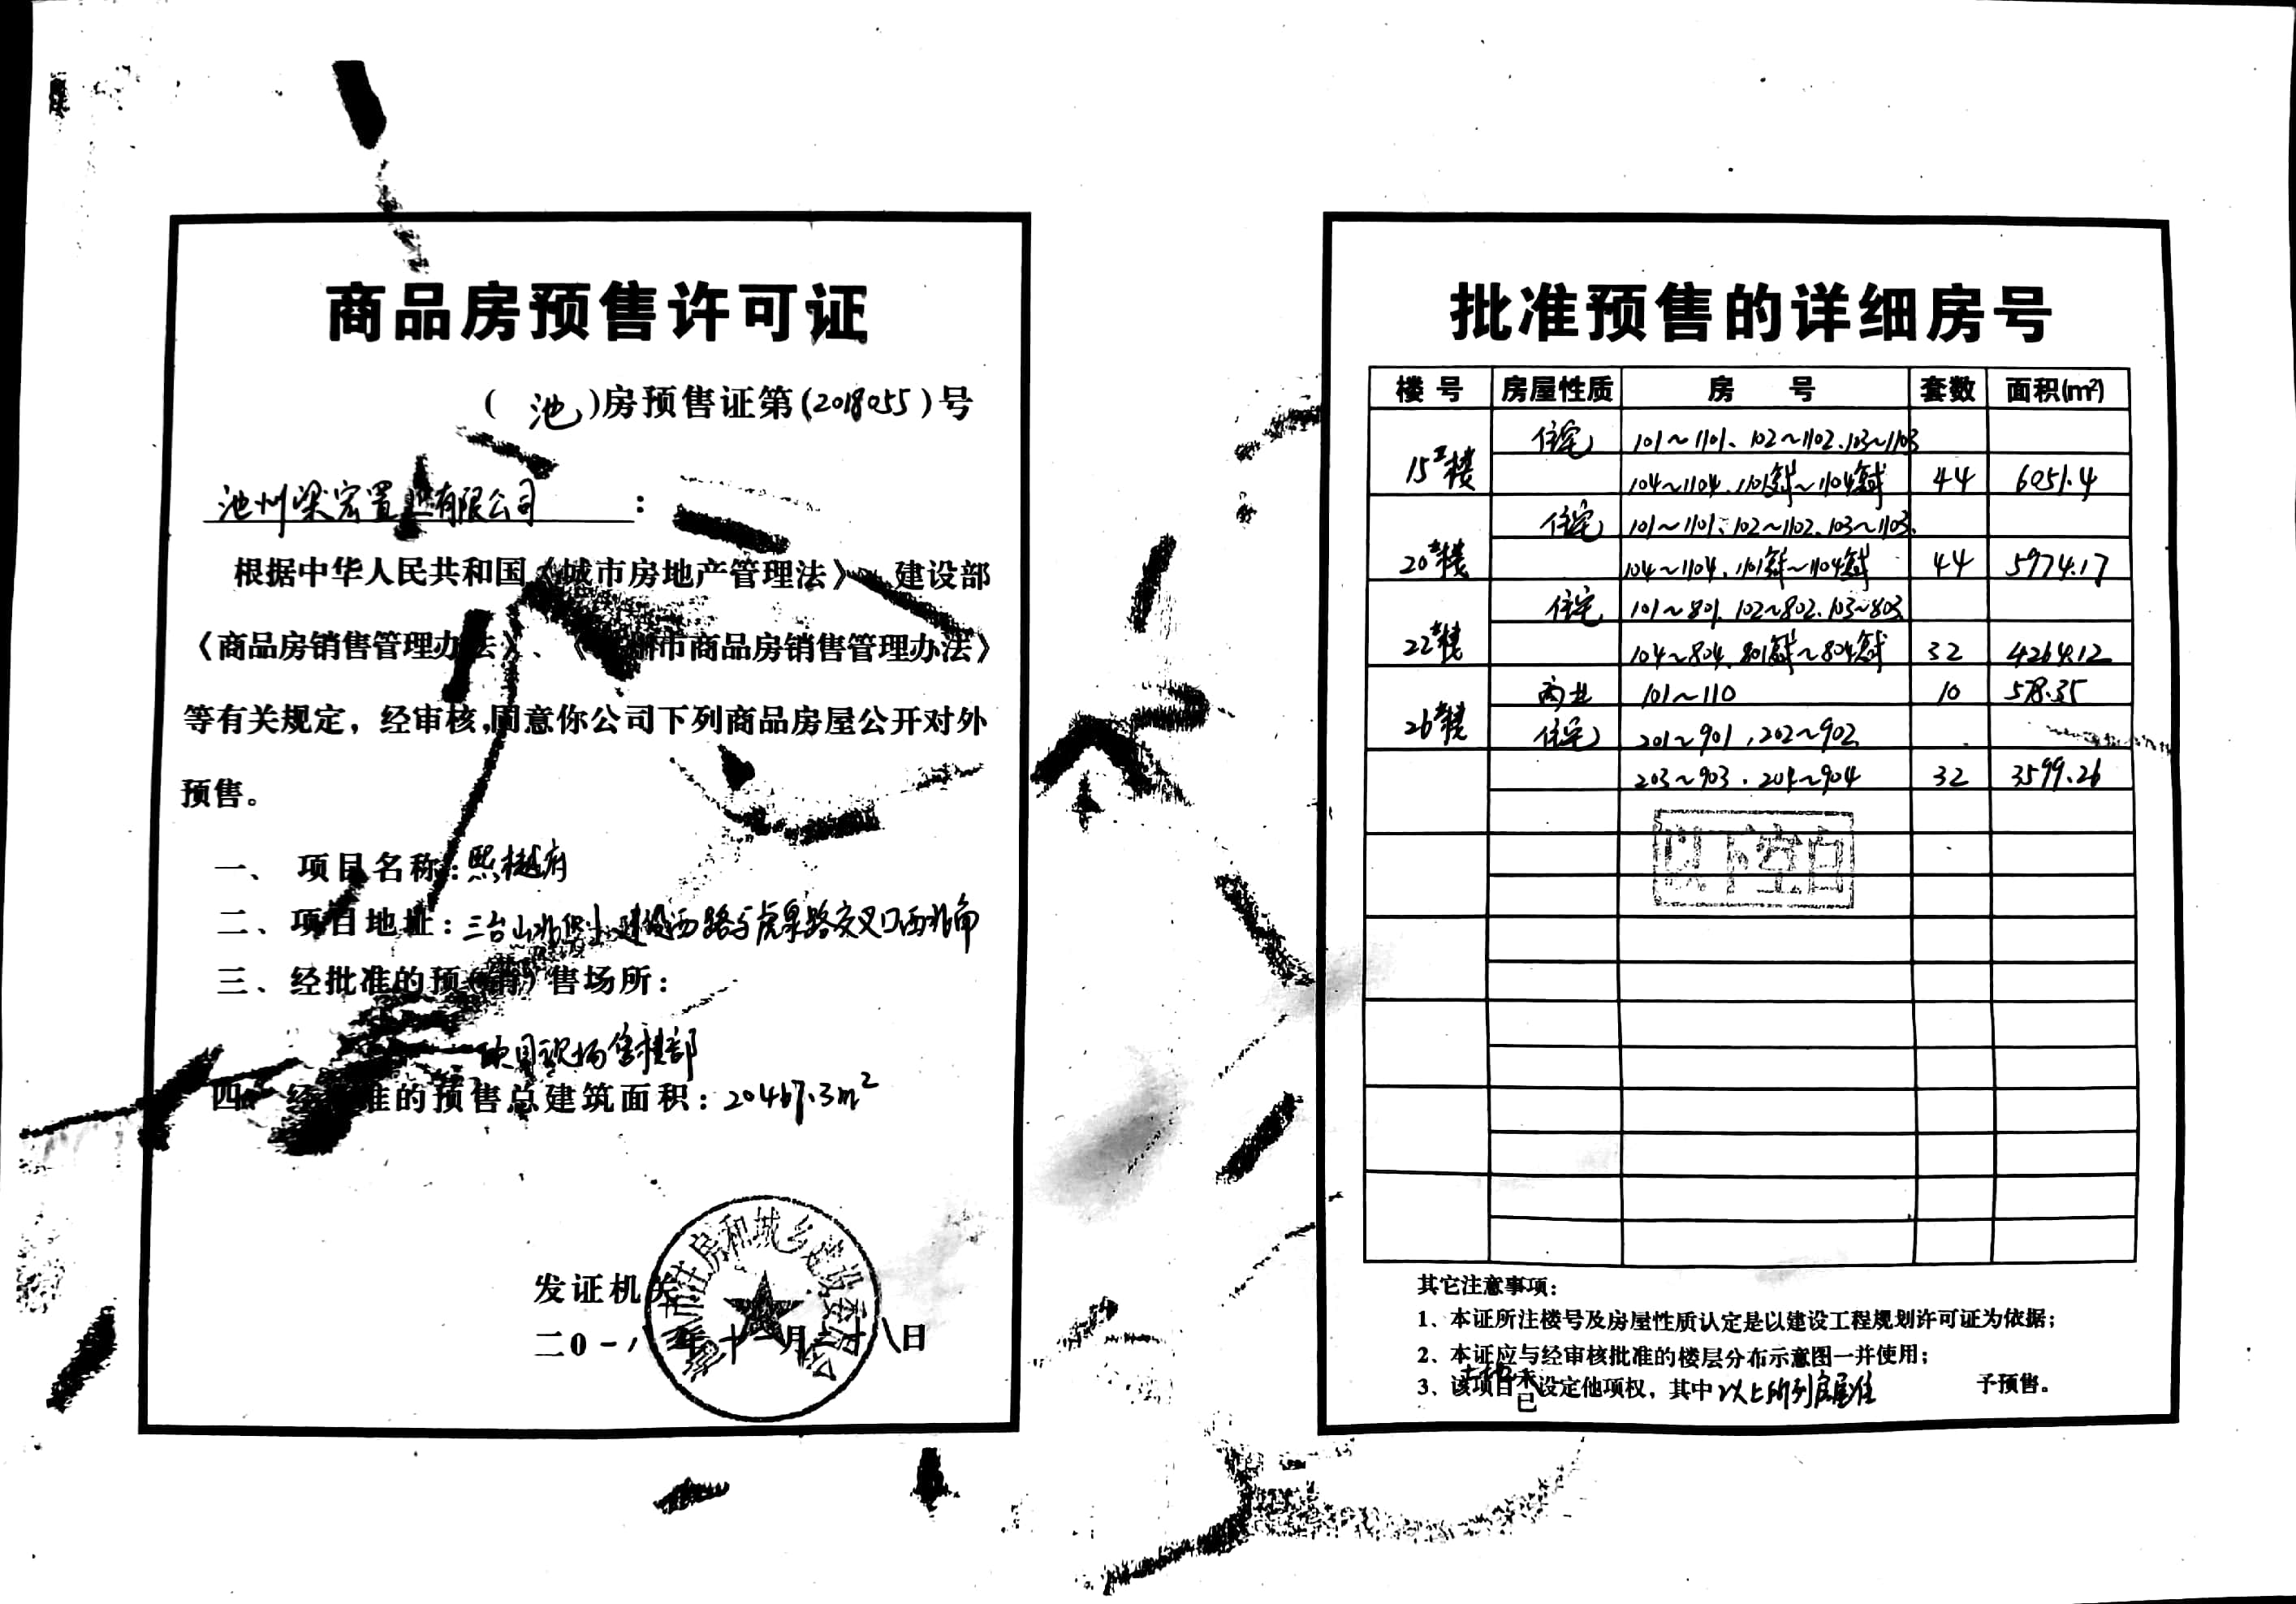 商品房预售许可证
(池)房预售证第(2018055)号
池州梁宏置业有限公司：
根据中华人民共和国《城市房地产管理法》、建设部
《商品房销售管理办法》、《州市商品房销售管理办法》
等有关规定，经审核，同意你公司下列商品房屋公开对外
预售。
一、项目名称：熙樾府
二、项目地址：三台山 建设西路与虎泉路交叉口西北角
三、经批准的预（销）售场所：
项目现场售楼部
四、经批准的预售总建筑面积：20467.3m²
发证机关
市住房和城乡建设委员会
二0一八年十一月 十八日
批准预售的详细房号
楼号 房屋性质 房号 套数 面积(m²)
15#楼 住宅 101~1101、102~1102、103~1103
104~1104、1101跃~1104跃 44 6051.4
20#楼 住宅 101~1101、102~1102、103~1103、
104~1104、1101跃~1104跃 44 5974.17
22#楼 住宅 101~801、102~802、103~803
104~804、801跃~804跃 32 4264.12
26#楼 商业 101~110 10 578.35
住宅 201~901，202~902
203~903、204~904 32 3599.26
以下空白
其它注意事项：
1、本证所注楼号及房屋性质认定是以建设工程规划许可证为依据；
2、本证应与经审核批准的楼层分布示意图一并使用；
3、该项目土地未已设定他项权，其中以上所列房屋准予预售。